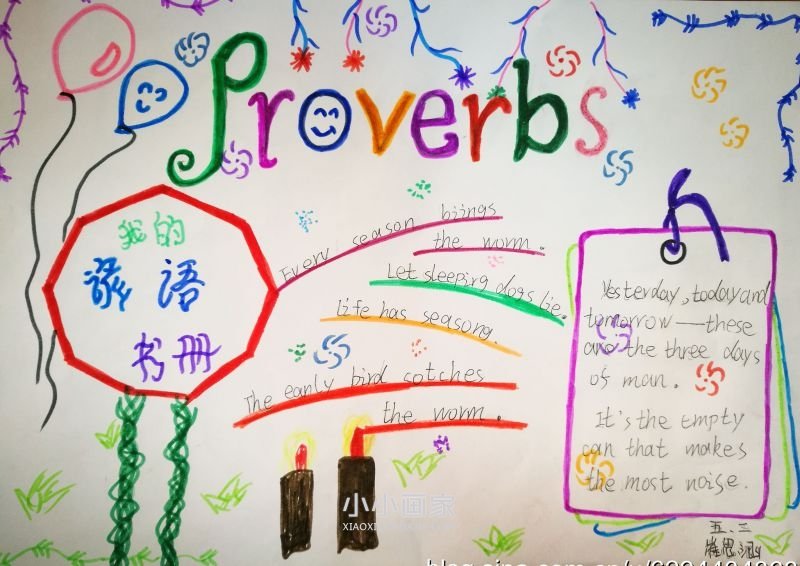 Proverbs
我的
谚语
书册
Every season biings
the worm.
Let sleeping dogs lie.
Life has seasong.
The eanly bird cotches
the worm.
Yesterday, today and
tomorrow——these
are the three days
of man.
It's the empty
can that makes
the most noise.
五、二
小小画家